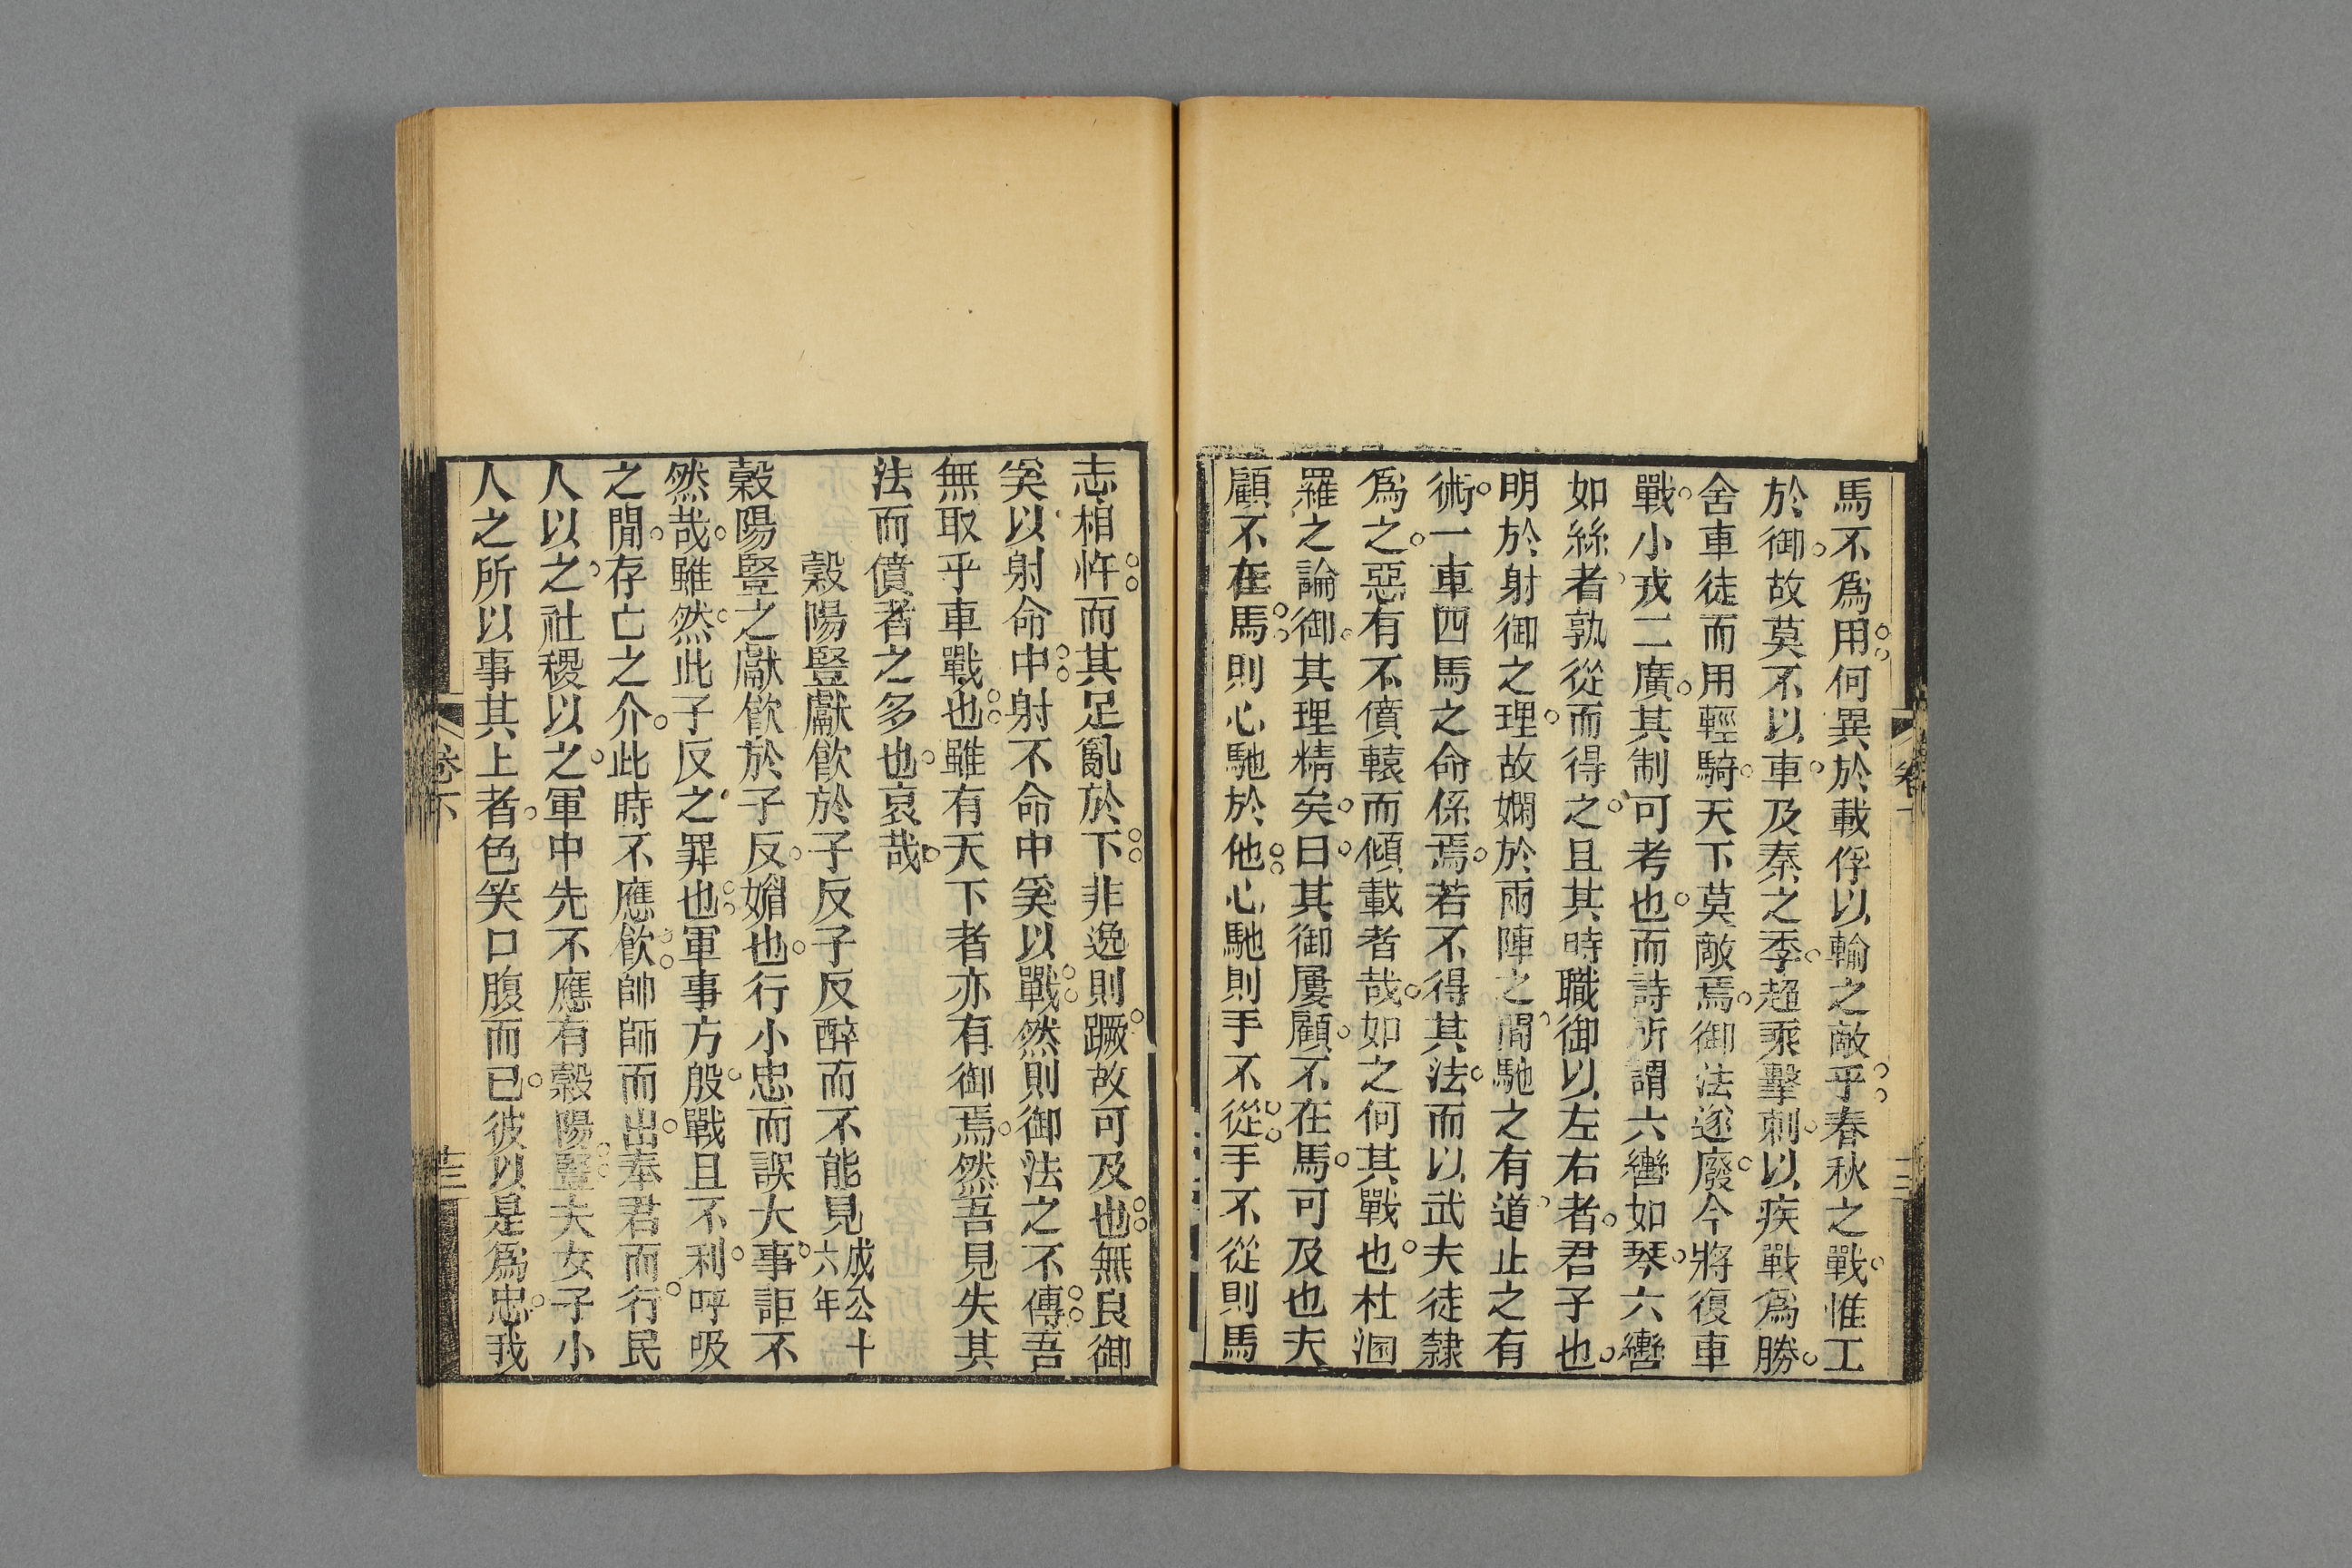 馬不爲用何異於載俘以輸之敵乎春秋之戰惟工
於御故莫不以車及秦之季超乘擊刺以疾戰爲勝
舍車徒而用輕騎天下莫敵焉御法遂廢今將復車
戰小戎二廣其制可考也而詩所謂六轡如琴六轡
如絲者孰從而得之且其時職御以左右者君子也
明於射御之理故嫻於兩陣之閒馳之有道止之有
術一車四馬之命係焉若不得其法而以武夫徒隸
爲之惡有不僨轅而傾載者哉如之何其戰也杜溷
羅之論御其理精矣曰其御屢顧不在馬可及也夫
顧不在馬則心馳於他心馳則手不從手不從則馬
志相忤而其足亂於下非逸則蹶故可及也無良御
矣以射命中射不命中奚以戰然則御法之不傳吾
無取乎車戰也雖有天下者亦有御焉然吾見失其
法而僨者之多也哀哉
穀陽豎獻飮於子反子反醉而不能見成公十六年
穀陽豎之獻飮於子反媚也行小忠而誤大事詎不
然哉雖然此子反之罪也軍事方殷戰且不利呼吸
之閒存亡之介此時不應飮帥師而出奉君而行民
人以之社稷以之軍中先不應有穀陽豎夫女子小
人之所以事其上者色笑口腹而已彼以是爲忠我
卷下